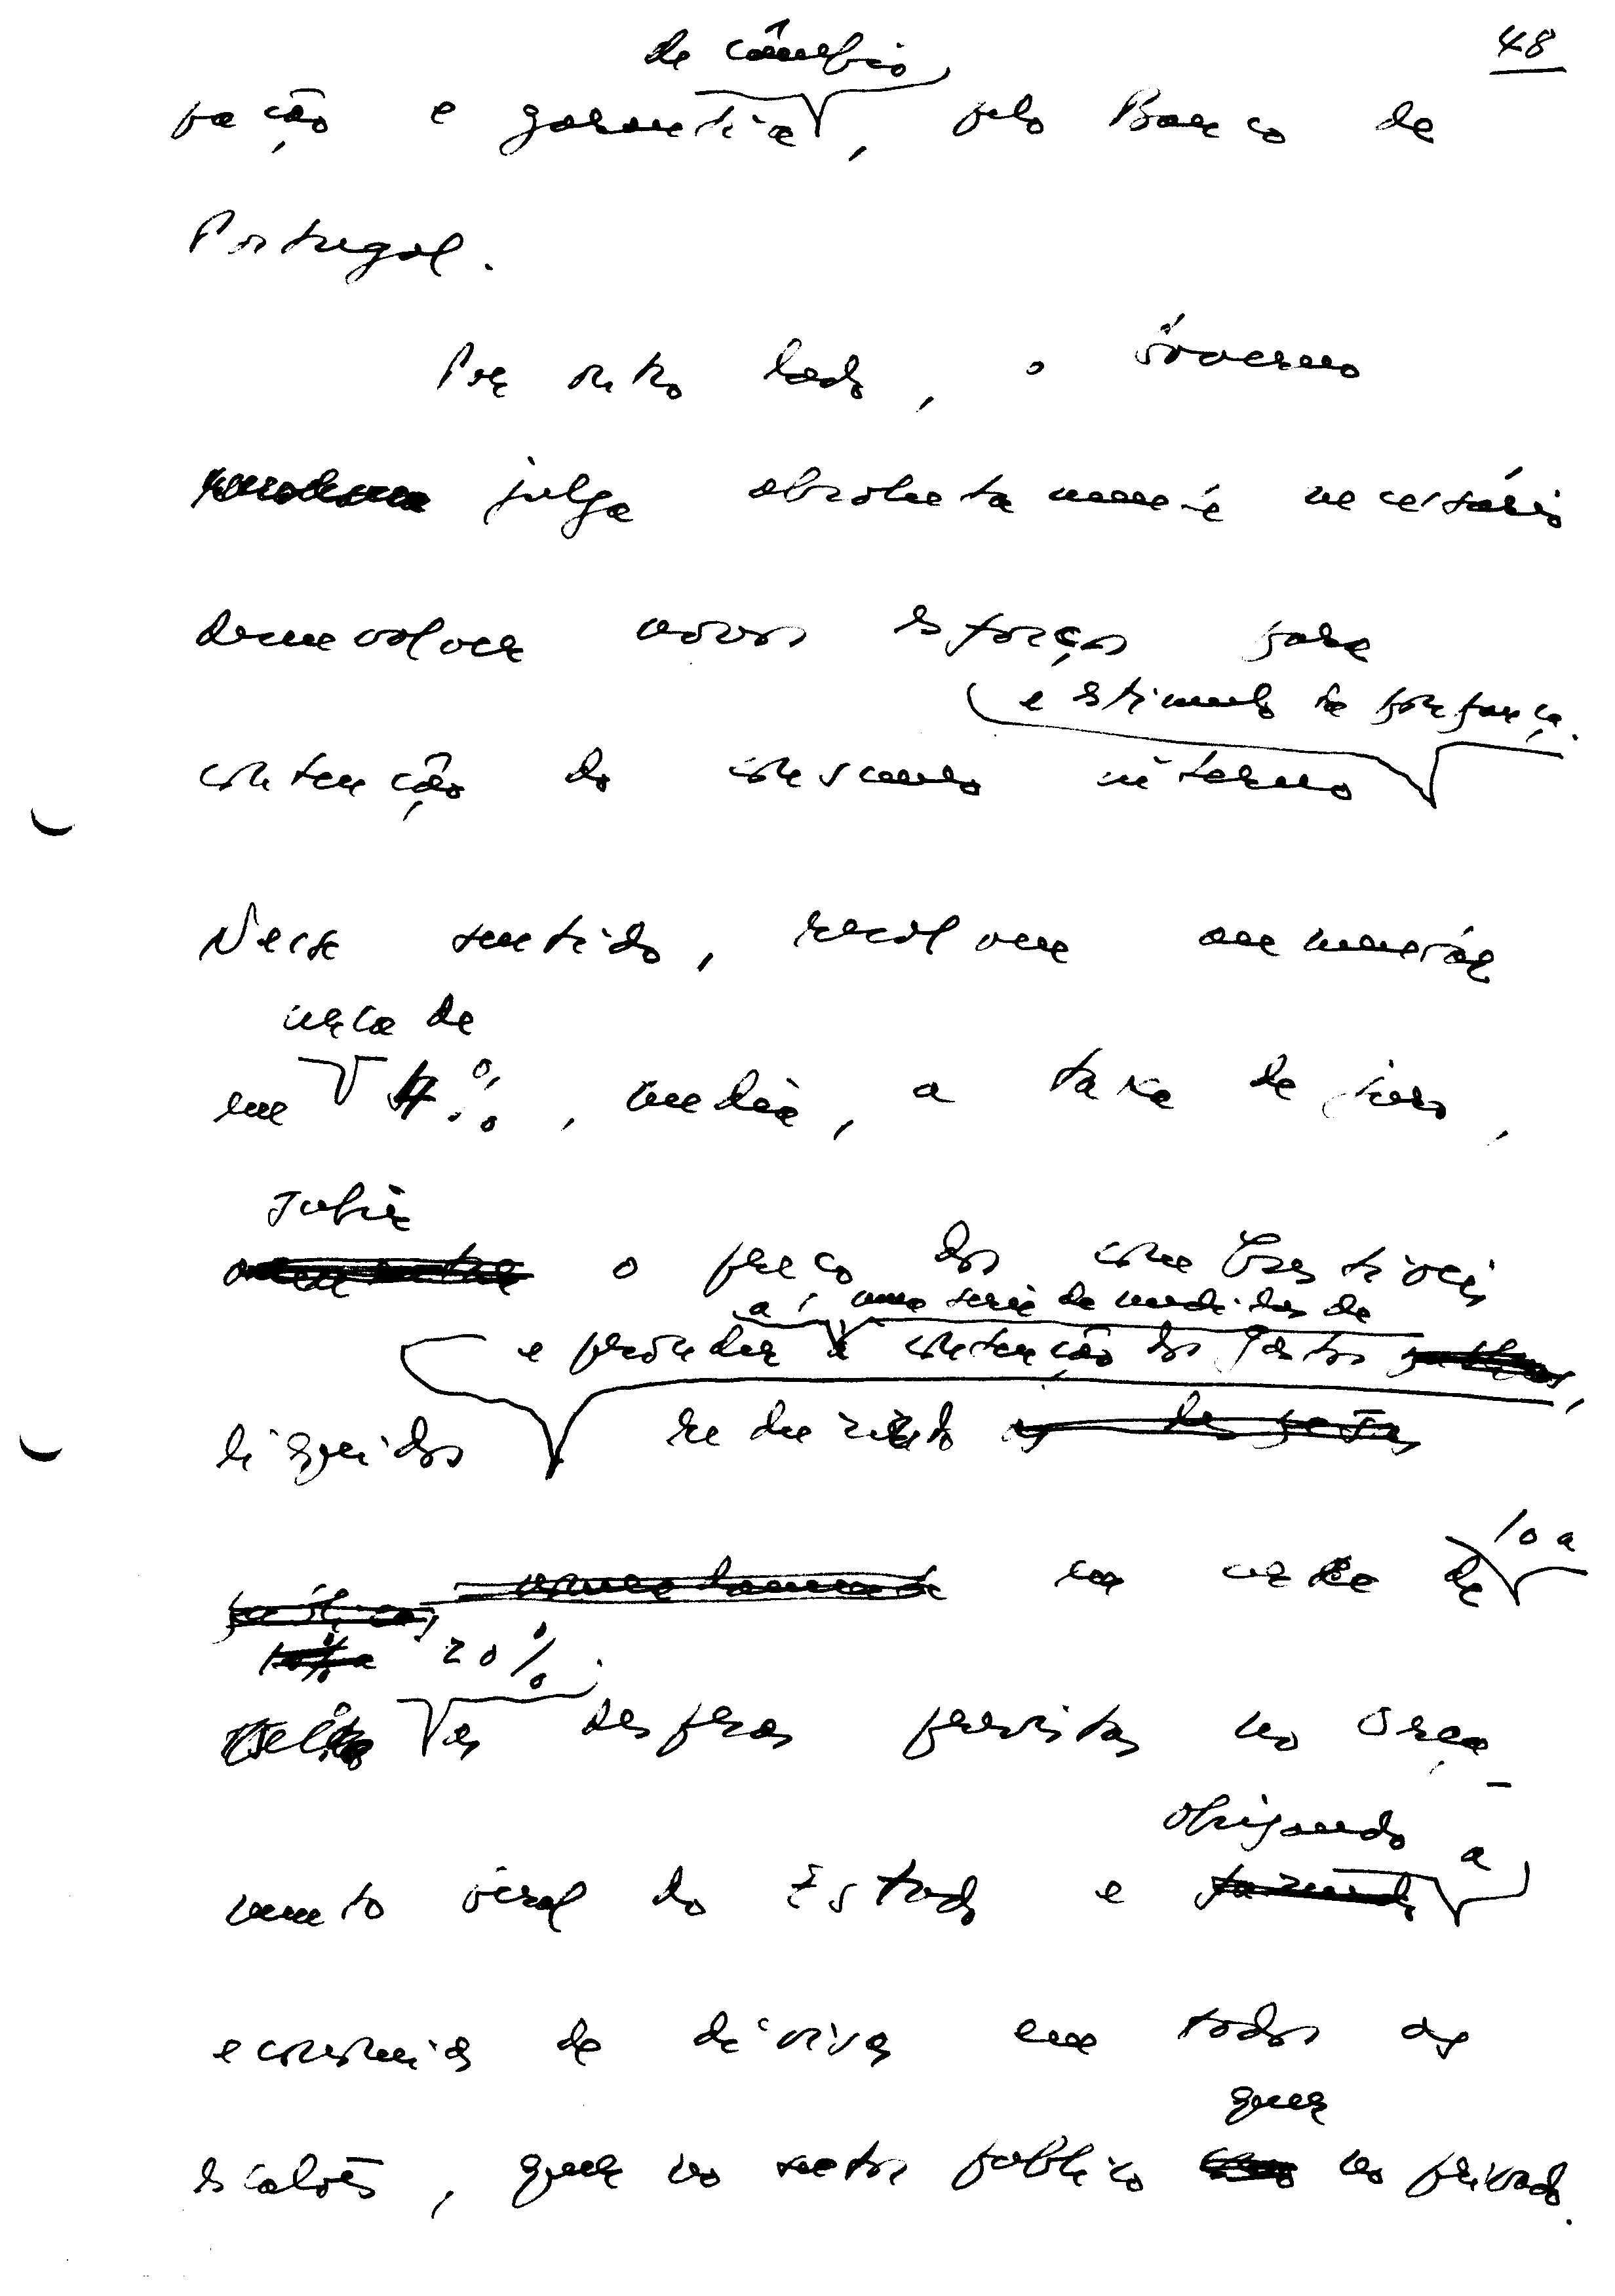 48
de câmbio
pação e garantia, pelo Banco de
Portugal.
Por outro lado, o Governo
julga absolutamente necessário
desenvolver novos esforços para
e estímulo da poupança.
contenção do consumo interno
Nesse sentido, resolveu aumentar
cerca de
em 4%, média, a taxa de juro,
subir
aumentar o preço dos combustíveis
a uma série de medidas de
e proceder à contenção dos gastos públicos,
líquidos reduzindo as despesas
10 a
públicas, em cerca de
10% a 20%
as despesas previstas no Orça-
obrigando a
mento Geral do Estado e fazendo
economias de divisas em todos os
quer
escalões, quer no sector público no privado.